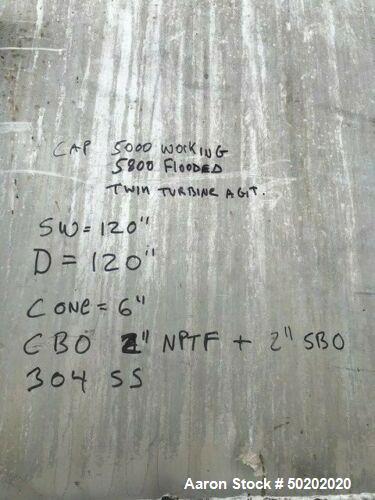 CAP 5000 WORKING
5800 FLOODED
TWIN TURBINE AGIT.
SW = 120"
D = 120"
CONE = 6"
CBO 2" NPTF + 2" SBO
304 SS
Aaron Stock # 50202020